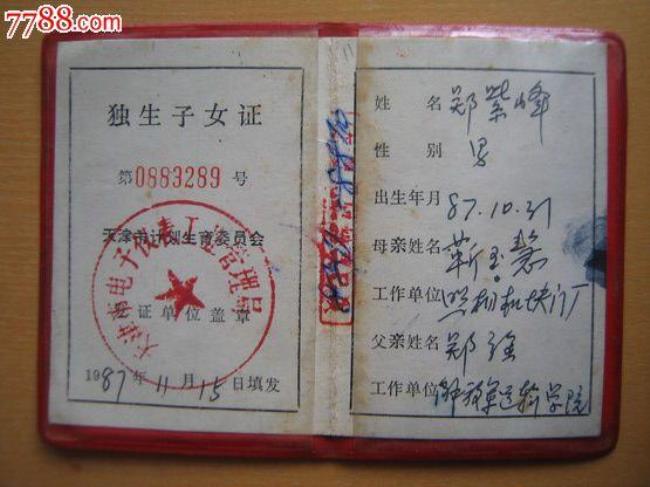 7788.com
独生子女证
第0883289号
天津市计划生育委员会
发证单位盖章
1987年11月15日填发
姓名 郑紫峰
性别 男
出生年月 87.10.31
母亲姓名 靳玉慧
工作单位 照相机快门厂
父亲姓名 郑强
工作单位 解放军运输学院